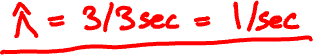 λ̂ = 3/3sec = 1/sec